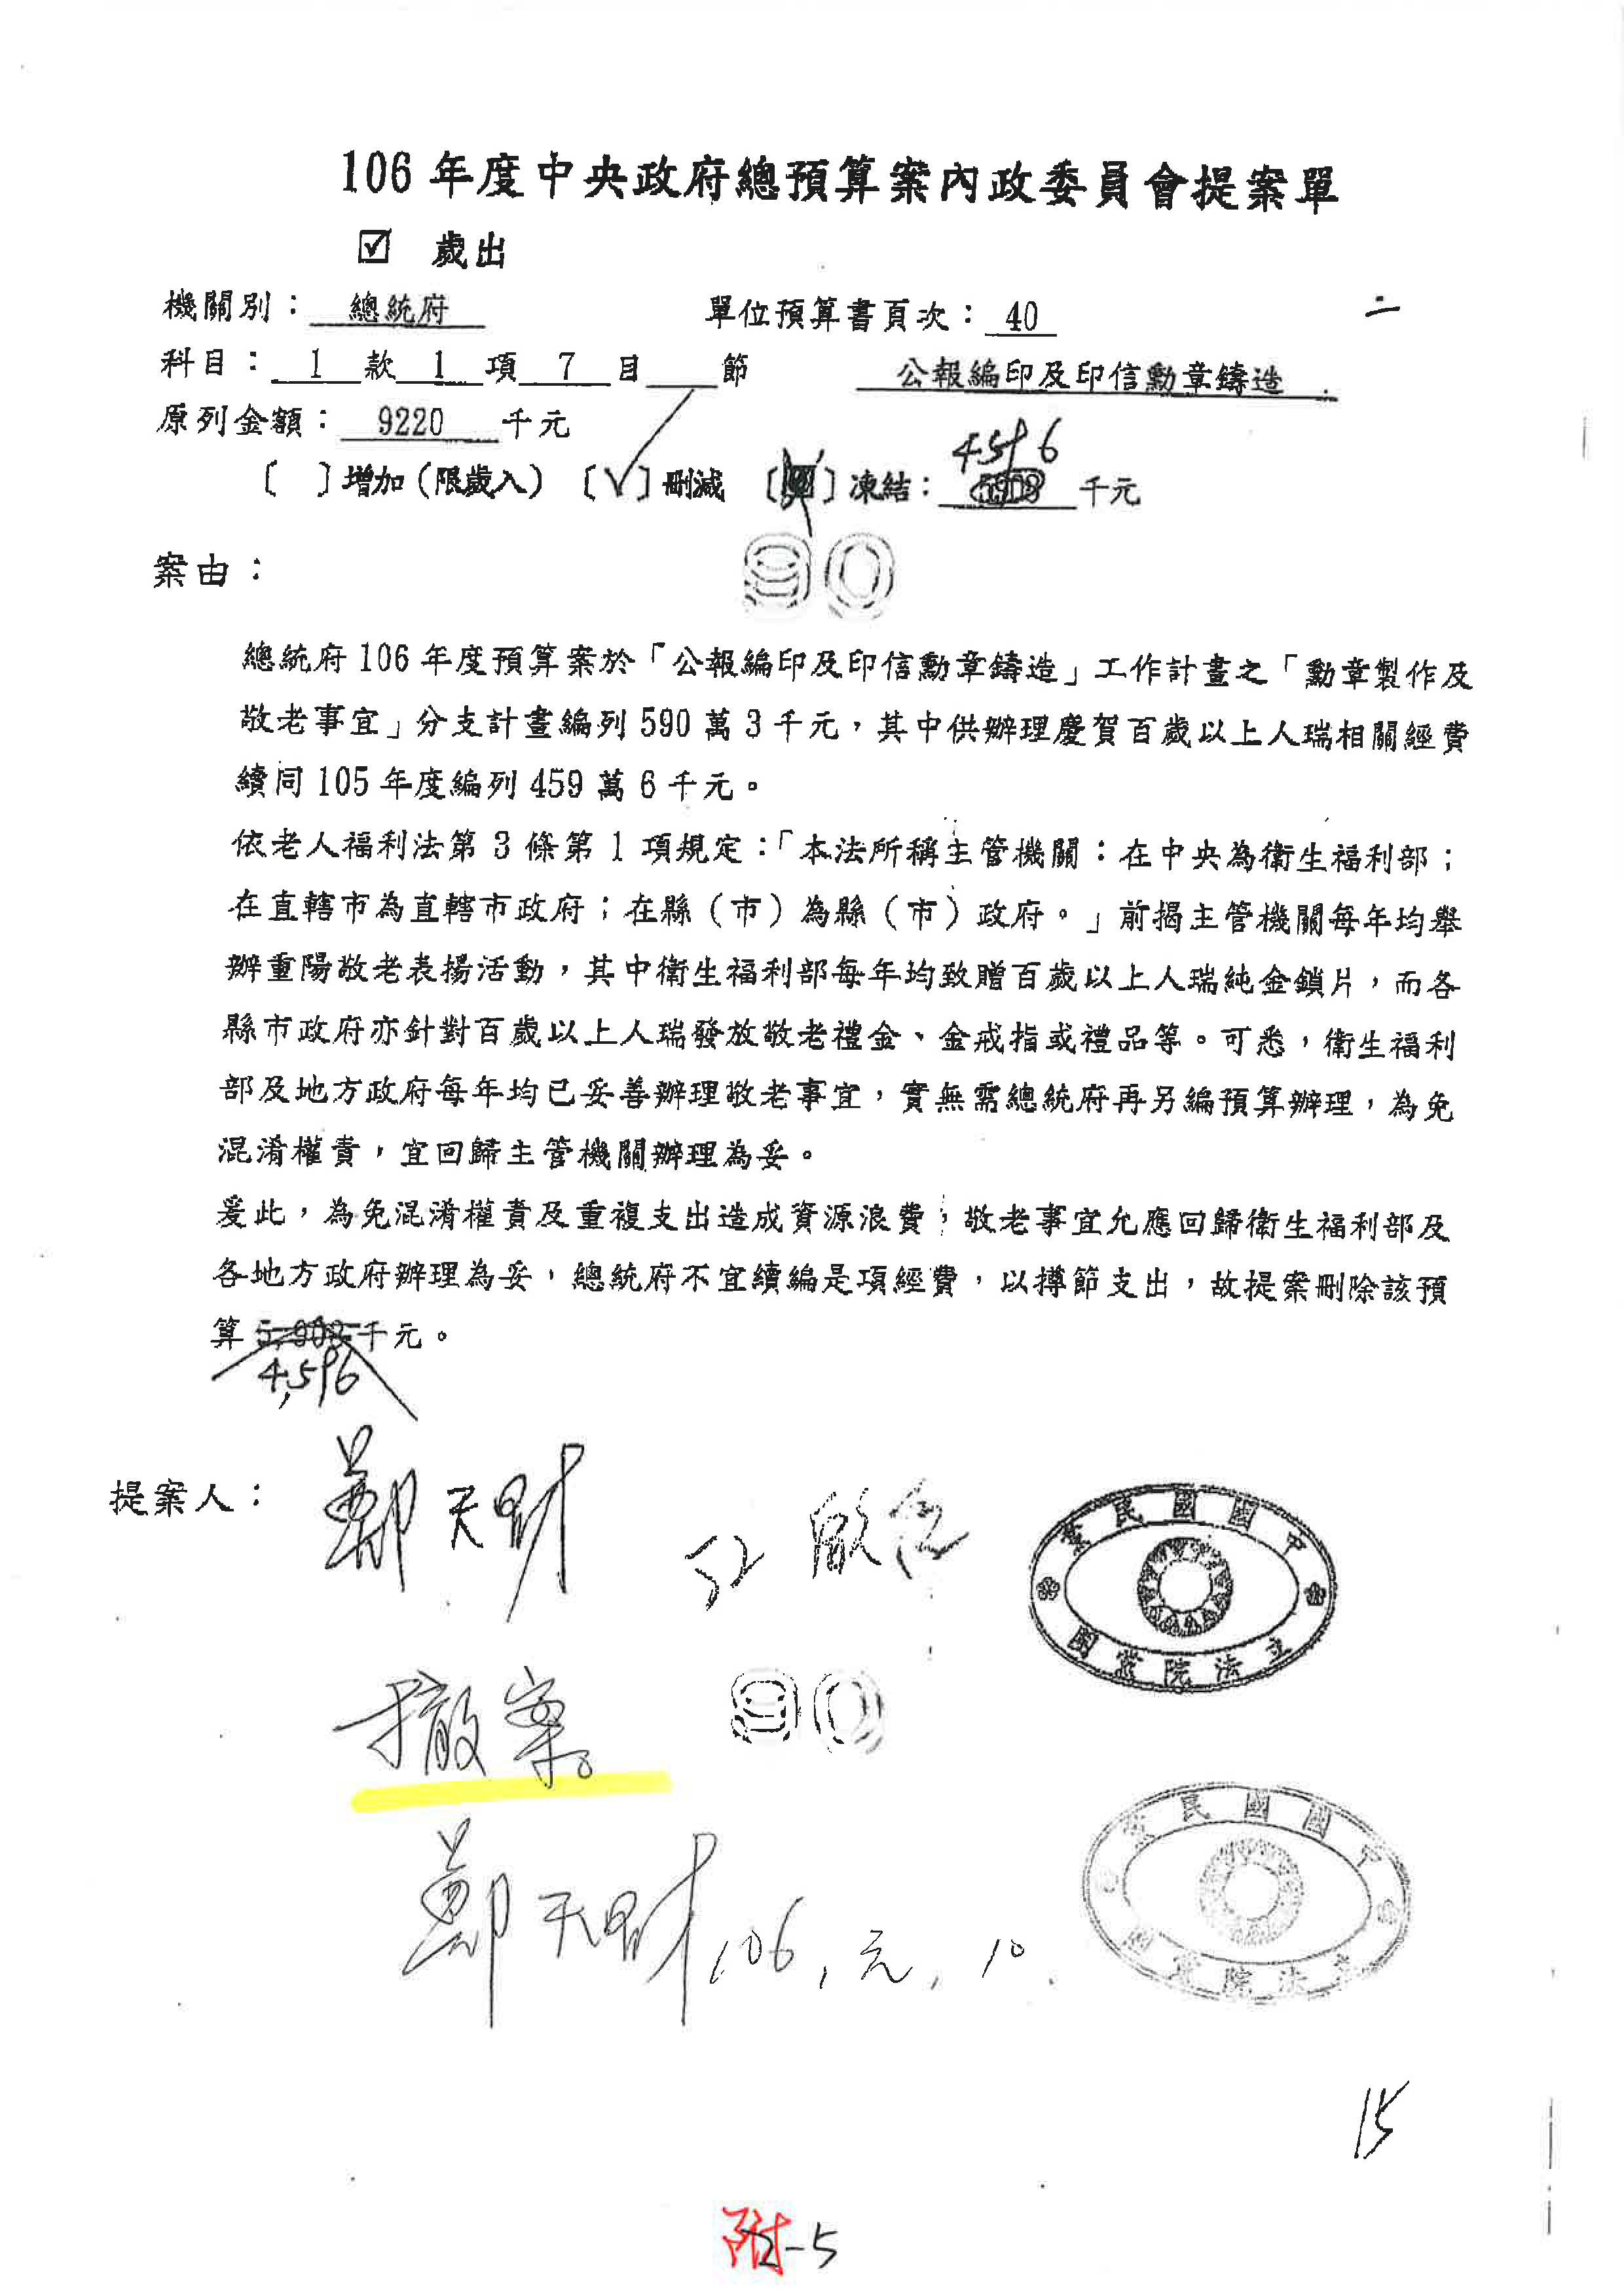 106 年度中央政府總預算案內政委員會提案單
☑ 歲出
機關別： 總統府 單位預算書頁次： 40 二
科目： 1 款 1 項 7 目 節 公報編印及印信勳章鑄造
原列金額： 9220 千元
〔 〕增加（限歲入）〔√〕刪減 〔 〕凍結： 4596 千元
案由：
90
總統府 106 年度預算案於「公報編印及印信勳章鑄造」工作計畫之「勳章製作及
敬老事宜」分支計畫編列 590 萬 3 千元，其中供辦理慶賀百歲以上人瑞相關經費
續同 105 年度編列 459 萬 6 千元。
依老人福利法第 3 條第 1 項規定：「本法所稱主管機關：在中央為衛生福利部；
在直轄市為直轄市政府；在縣（市）為縣（市）政府。」前揭主管機關每年均舉
辦重陽敬老表揚活動，其中衛生福利部每年均致贈百歲以上人瑞純金鎖片，而各
縣市政府亦針對百歲以上人瑞發放敬老禮金、金戒指或禮品等。可悉，衛生福利
部及地方政府每年均已妥善辦理敬老事宜，實無需總統府再另編預算辦理，為免
混淆權責，宜回歸主管機關辦理為妥。
爰此，為免混淆權責及重複支出造成資源浪費，敬老事宜允應回歸衛生福利部及
各地方政府辦理為妥，總統府不宜續編是項經費，以撙節支出，故提案刪除該預
算 5,903 千元。
4,596
提案人： 鄭天財 江啟臣
中國國民黨
立法院黨團
撤案。
90
鄭天財 106，元，10.
中國國民黨
立法院黨團
15
附2-5